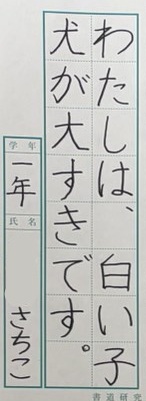 わたしは、白い子
犬が大すきです。
学年
一年
氏名
さちこ
書道研究